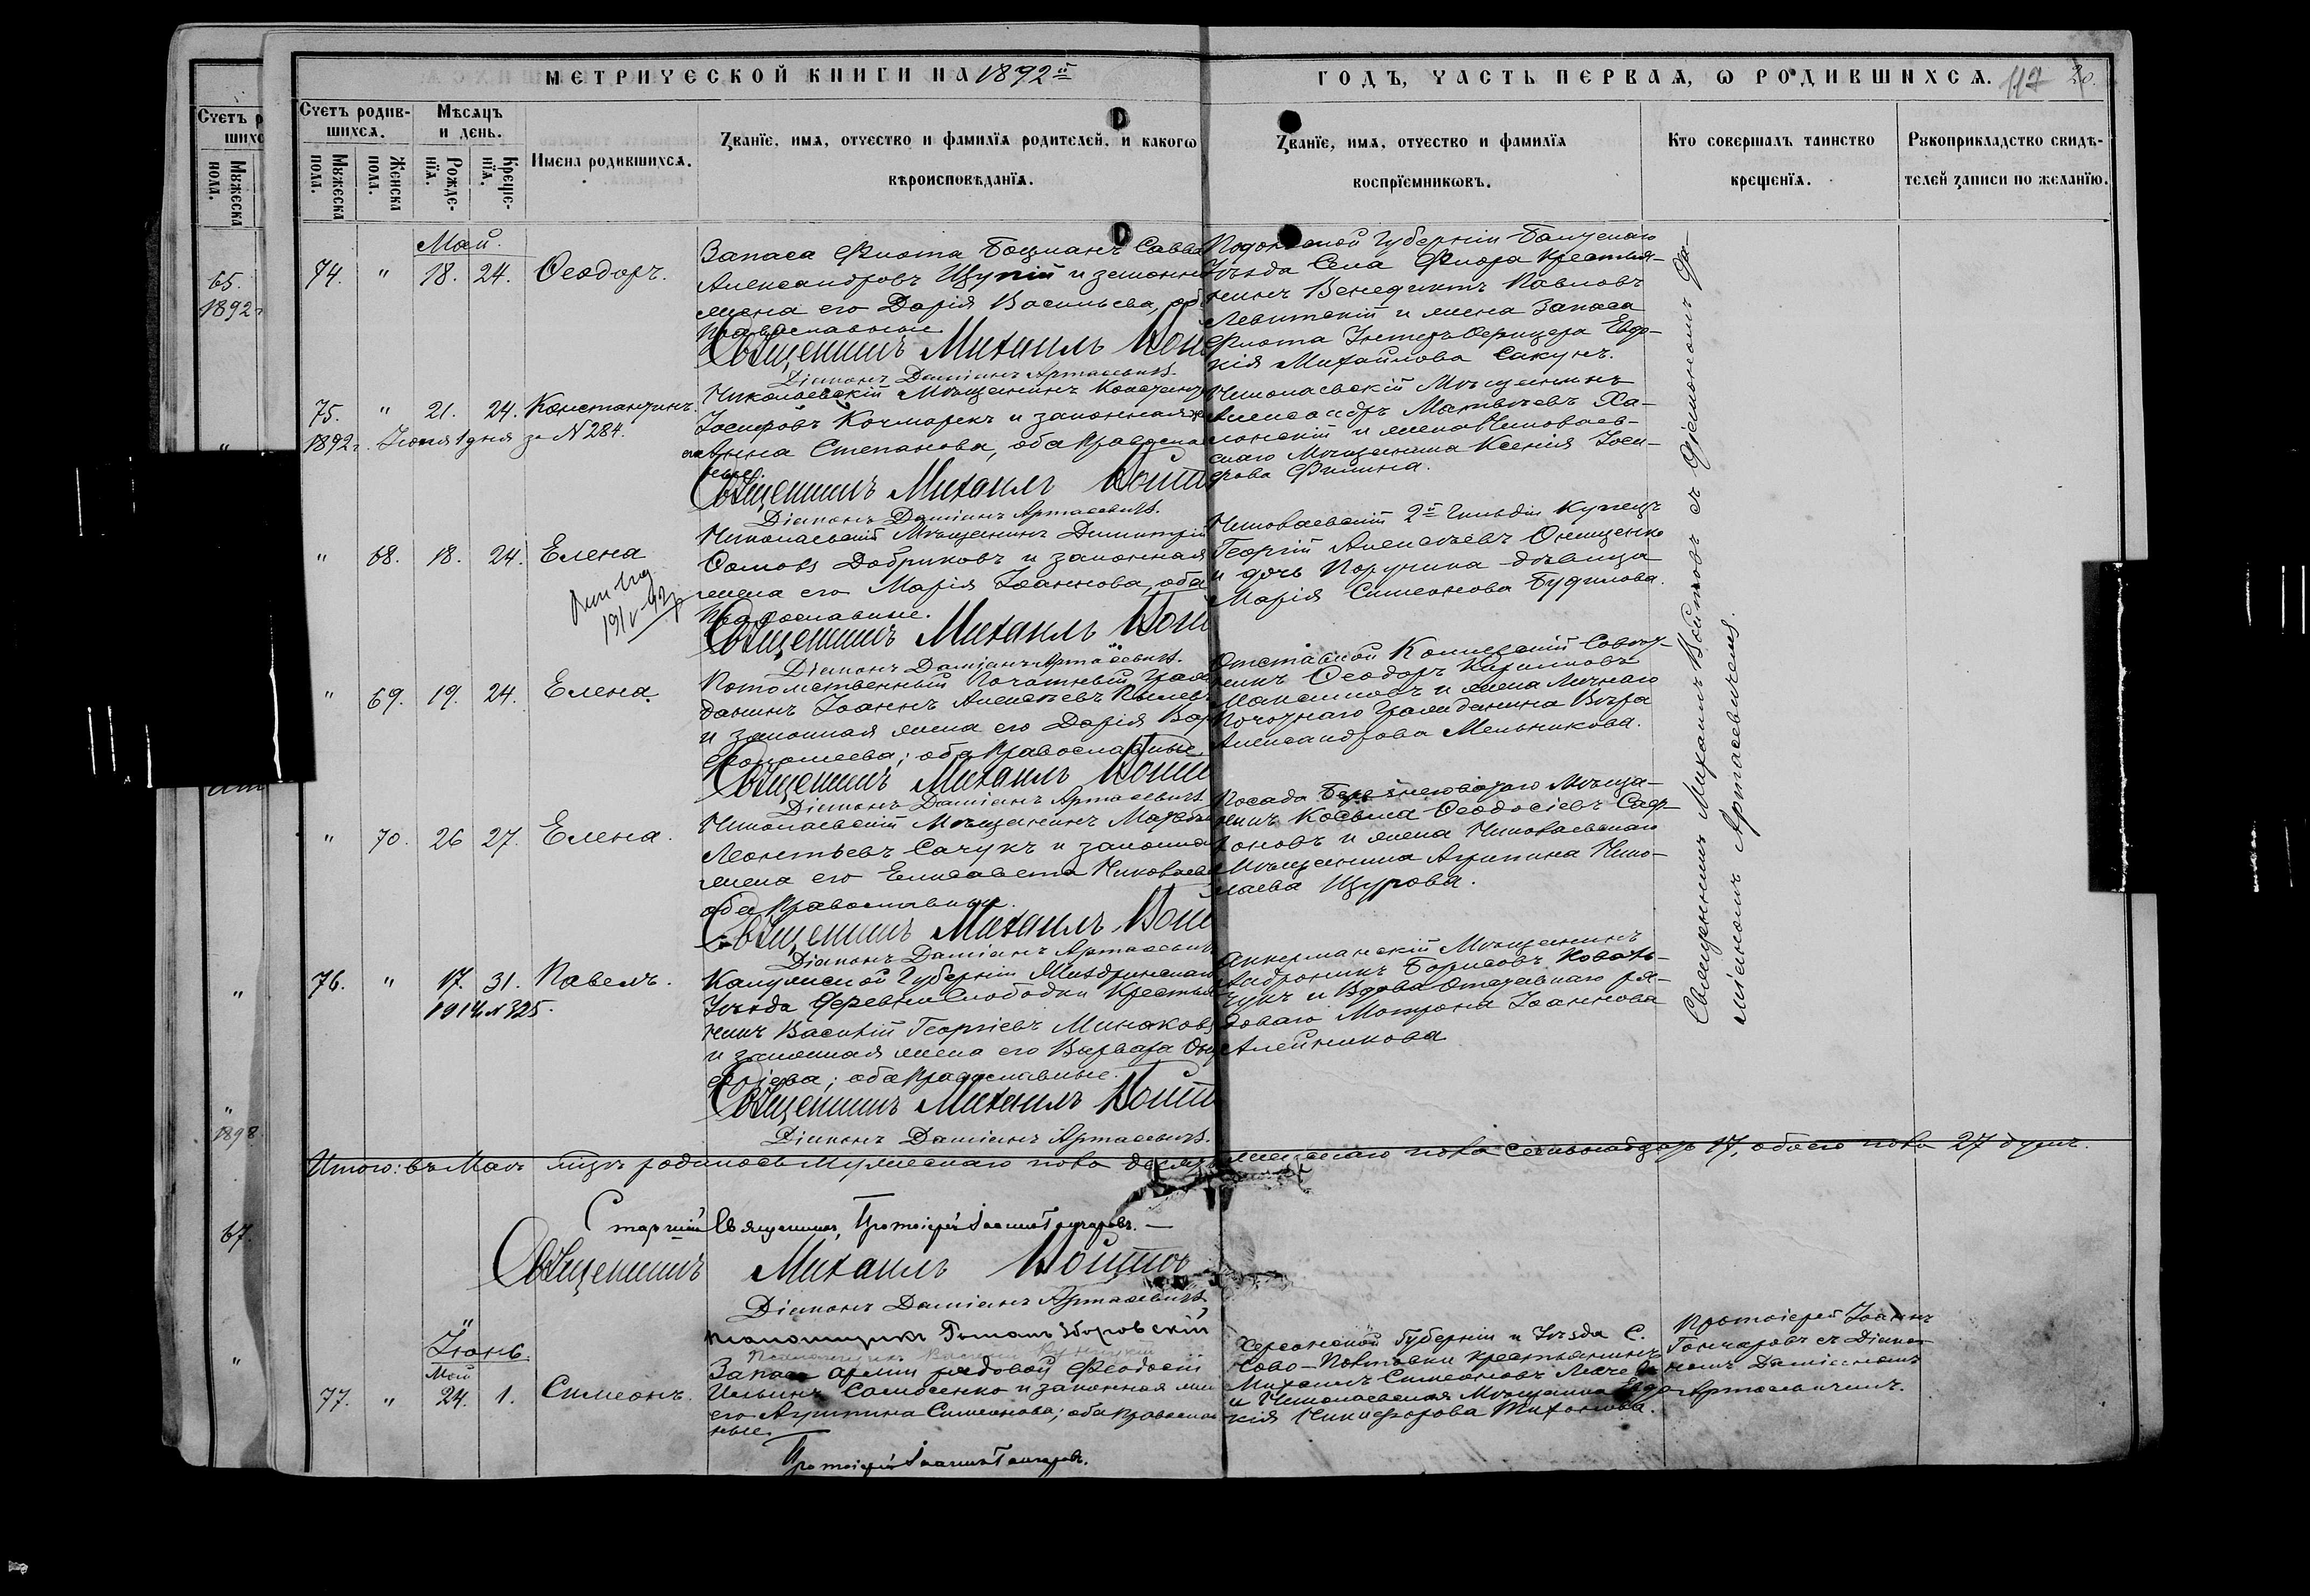 МЕТРИЧЕСКОЙ КНИГИ НА 1892й
ГОДЪ, ЧАСТЬ ПЕРВАЯ, Ѡ РОДИВШИХСЯ. 117 20.
Счетъ родив-
шихся.
Мѣсяцъ
и день.
Мꙋжеска
пола.
Женска
пола.
Рожде-
нїя.
Креще-
нїя.
Имена родившихся.
Званїе, имя, отчество и фамилїя родителей, и какого
вѣроисповѣданїя.
Званїе, имя, отчество и фамилїя
воспрїемникѡвъ.
Кто совершалъ таинство
крещенїя.
Рꙋкоприкладство свидѣ-
телей записи по желанїю.
Май.
74. " 18. 24. Ѳеодоръ.
Запаса Флота Боцманъ Савва
Александровъ Щупій и законная
жена его Дарія Васильева, об
Православные.
Священникъ Михаилъ Вой
Діаконъ Даміанъ Артасевичъ.
Подольской Губерніи Балтскаго
Уѣзда Села Флора Крестья-
нинъ Венедиктъ Павловъ
Левитскій и жена Запаса
Флота Унтеръ Офицера Евдо-
кія Михайлова Сакунъ.
75. " 21. 24. Константинъ.
1892г. Іюня 1 дня за № 284.
Николаевскій Мѣщанинъ
Іосифовъ Качмарекъ и законная ж
Анна Степанова, оба Православ
ные.
Священникъ Михаилъ Войт
Діаконъ Даміанъ Артасевичъ.
Николаевскій Мѣщанинъ
Александръ Матвѣевъ Ха-
лонскій и жена Николаев-
скаго Мѣщанина Ксенія Іоси-
фова Филина.
" 68. 18. 24. Елена
Николаевскій Мѣщанинъ Димитрій
Саловъ Добриковъ и законная
жена его Марія Іоаннова, оба
Православные.
Священникъ Михаилъ Вой
Діаконъ Даміанъ Артасевичъ.
Николаевскій 2й Гильдіи Купецъ
Георгій Алексѣевъ Онищенко
и дочь Поручика дѣвица
Марія Симеонова Будилова.
" 69. 19. 24. Елена.
Потомственный Почетный Граж
данинъ Іоаннъ Алексѣевъ
и законная жена его Дарія Вар
фоломеева; оба Православные.
Священникъ Михаилъ Войт
Діаконъ Даміанъ Артасевичъ
Отставной Коллежскій Совѣт-
никъ Ѳеодоръ Кирилловъ
Максимовъ и жена Личнаго
Почетнаго Гражданина Вѣра
Александрова Мельникова.
" 70. 26 27. Елена.
Николаевскій Мѣщанинъ
Леонтьевъ Сачукъ и законная
жена его Елисавета Николаева
оба Православные.
Священникъ Михаилъ Вой
Діаконъ Даміанъ Артасевичъ
Посада Березнеговатаго Мѣща-
нинъ Косьма Ѳеодосіевъ Саф-
роновъ и жена Николаевскаго
Мѣщанина Агрипина Нико-
лаева Щурова.
76. " 17. 31. Павелъ.
1914 №325.
Калужской Губерніи Мещовскаго
Уѣзда Деревни Слободки Крестья
нинъ Василій Георгіевъ Минаковъ
и законная жена его Варвара
; оба Православные.
Священникъ Михаилъ Войт
Діаконъ Даміанъ Артасевичъ.
Аккерманскій Мѣщанинъ
Андроникъ Борисовъ Коваль-
чукъ и Вдова Отставнаго ря-
доваго Матрона Іоаннова
Алейникова
Священникъ Михаилъ Войтовъ съ Діакономъ Да-
міаномъ Артасевичемъ.
Итого: въ Маѣ м-цѣ родилось мужескаго пола десять женскаго пола семнадцать 17, обоего пола 27 душъ.
Старшій Священникъ, Протоіерей Іоаннъ Гончаровъ.
Священникъ Михаилъ Войтов
Діаконъ Даміанъ Артасевичъ,
Псаломщикъ Романъ Зборовскій
Іюнь.
Май
77. " 24. 1. Симеонъ.
Запаса арміи рядовой Ѳеодосій
Ильинъ Самосенко и законная жен
его Агрипина Симеонова; оба Православ
ные.
Протоіерей Іоаннъ Гончаровъ.
Херсонской Губерніи и Уѣзда С.
Ново-Полтавки крестьянинъ
Михаилъ Симеоновъ
и Николаевская Мѣщанка Евдо
кія Никифорова Тихонова.
Протоіерей Іоаннъ
Гончаровъ съ Діако-
номъ Даміаномъ
Артасевичемъ.
65.
1892г
1898.
67.